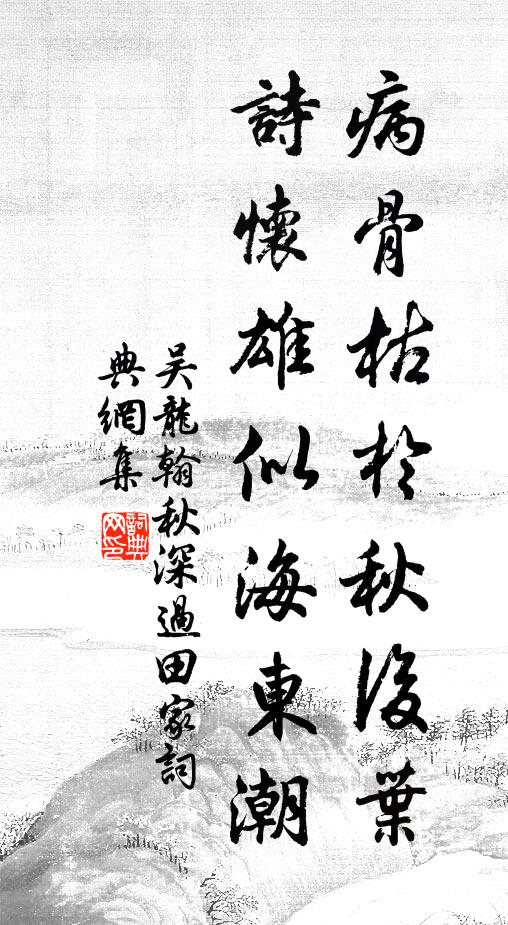 病骨枯於秋後葉
詩懷雄似海東潮
吴龍翰秋深過田家詞
典網集
詞典